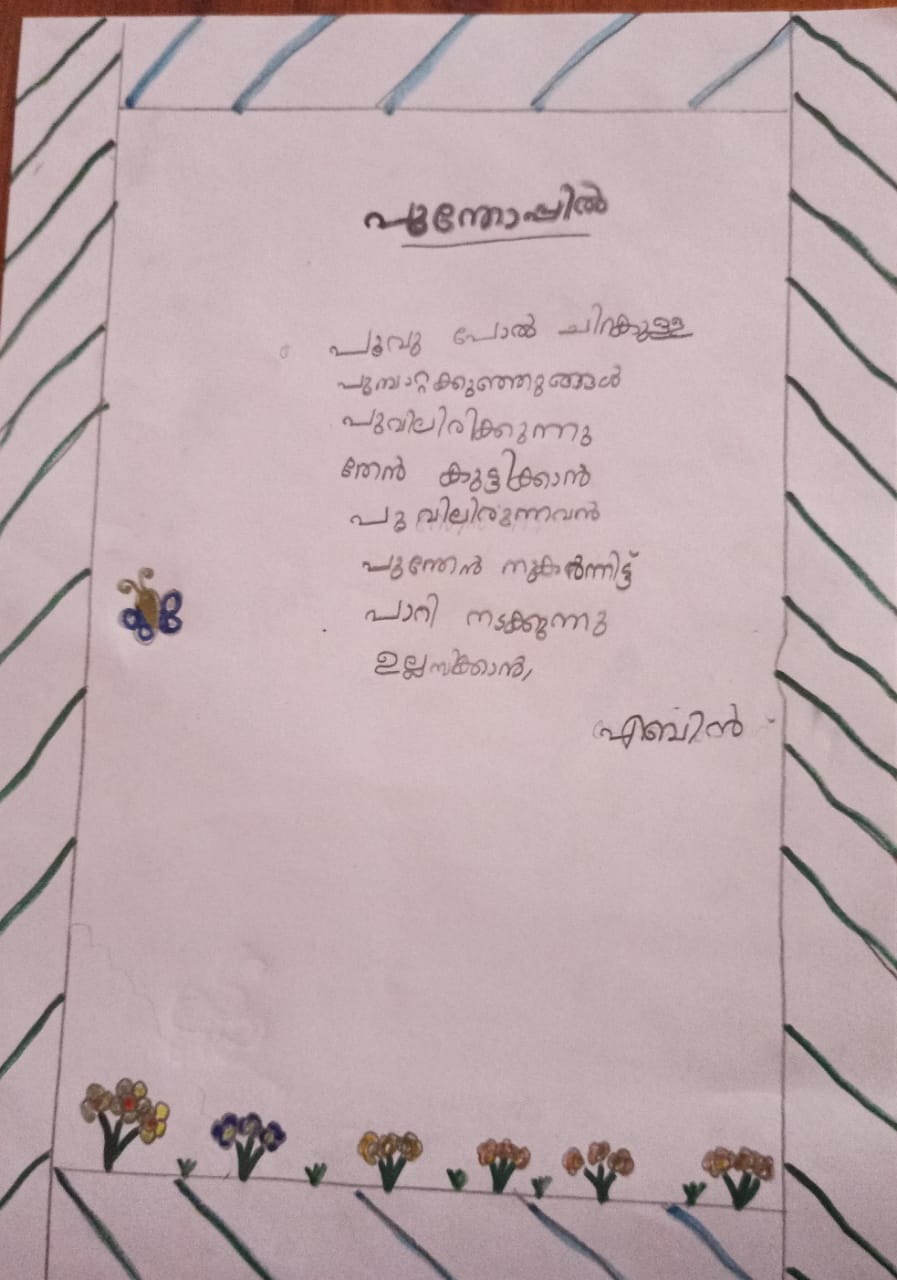 പൂന്തോപ്പിൽ
പൂവു പോൽ ചിറകുള്ള
പുമ്പാറ്റക്കുഞ്ഞുങ്ങൾ
പുവിലിരിക്കുന്നു
തേൻ കുട്ടിക്കാൻ
പു വിലിരുന്നവൻ
പുന്തേൻ നുകർന്നിട്ട്
പാറി നടക്കുന്നു
ഉല്ലസിക്കാൻ,
എബിൻ